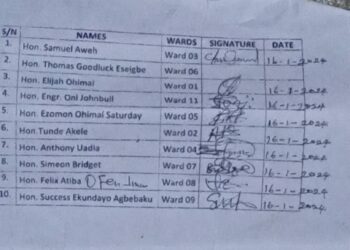 S/N NAMES WARDS SIGNATURE DATE
1. Hon. Samuel Aweh Ward 03 16-1-2024
2. Hon. Thomas Goodluck Eseigbe Ward 06
3. Hon. Elijah Ohimai Ward 01 16-1-2024
4. Hon. Engr. Oni Johnbull Ward 11 16-1-2024
5. Hon. Ezomon Ohimai Saturday Ward 05 16-1-2024
6. Hon. Tunde Akele Ward 02 16-1-2024
7. Hon. Anthony Uadia Ward 04 16-1-2024
8. Hon. Simeon Bridget Ward 07 16-1-2024
9. Hon. Felix Atiba Ward 08 16-1-2024
10. Hon. Success Ekundayo Agbebaku Ward 09 16-1-2024